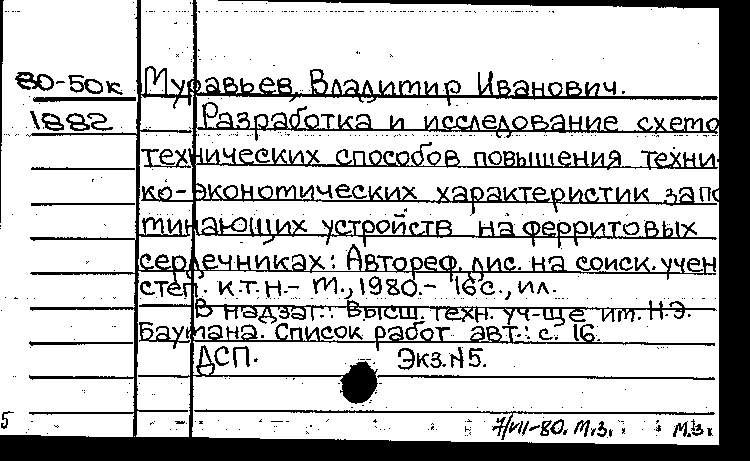 80-50к Муравьев, Владимир Иванович.
1882 Разработка и исследование схемо
технических способов повышения техни-
ко-экономических характеристик запо
минающих устройств на ферритовых
сердечниках: Автореф. дис. на соиск. учен
степ. к.т.н.- М., 1980.- 16 с., ил.
В надзаг.: Высш. техн. уч-ще им. Н.Э.
Баумана. Список работ авт.: с. 16.
ДСП. Экз. №5.
5 7/VII-80. М.З. М.З.